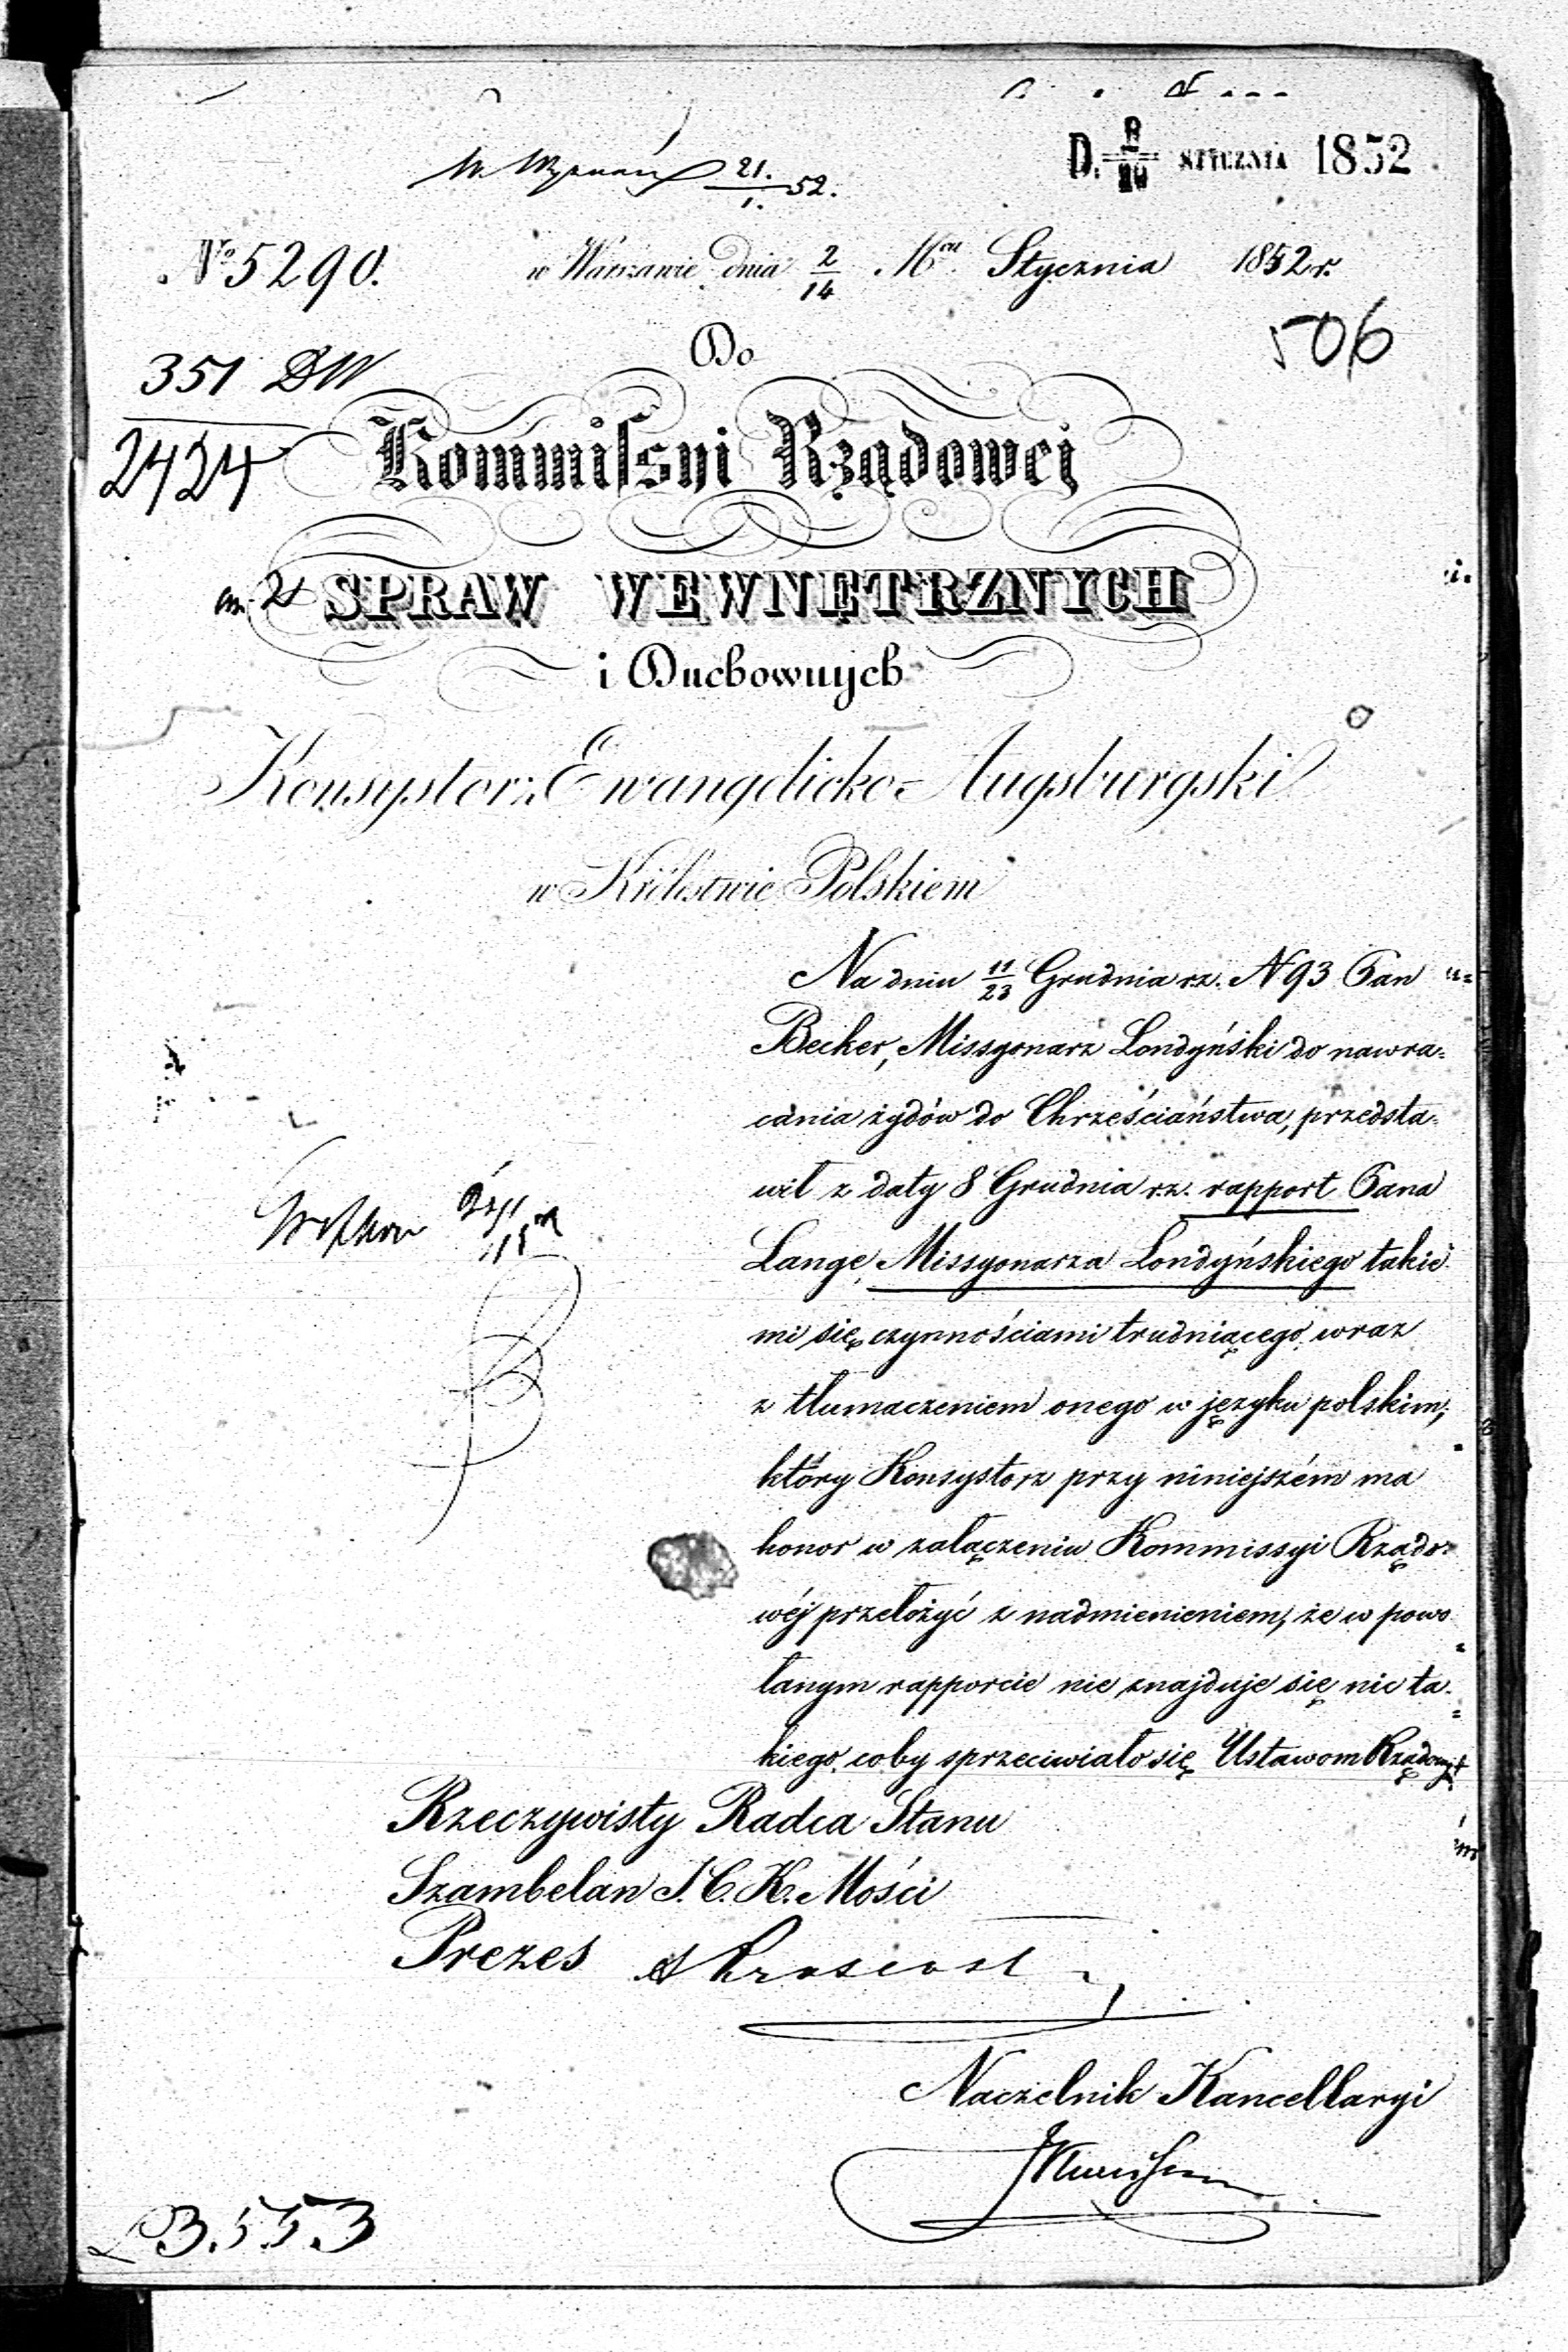 D. 8/20 STYCZNIA 1852
21./1. 52.
№ 5290. w Warszawie dnia 2/14 Mca Stycznia 1852 r.
506
Do
351 DW
2424
Kommissyi Rządowej
SPRAW WEWNĘTRZNYCH
i Duchownych
Konsystorz Ewangelicko-Augsburgski
w Królestwie Polskiem
Na dniu 11/23 Grudnia r.z. N 93 Pan
Becker, Missyonarz Londyński do nawra-
cania żydów do Chrześciaństwa, przedsta-
wił z daty 8 Grudnia r.z. rapport Pana
Lange, Missyonarza Londyńskiego takie-
mi się czynnościami trudniącego, wraz
z tłumaczeniem onego w języku polskim,
który Konsystorz przy niniejszém ma
honor w załączeniu Kommissyi Rządo-
wéj przełożyć z nadmienieniem, że w powo-
łanym rapporcie nie znajduje się nic ta-
kiego, coby sprzeciwiało się Ustawom Rządowym
Rzeczywisty Radca Stanu
Szambelan J.C.K. Mości
Prezes
Naczelnik Kancellaryi
B.553